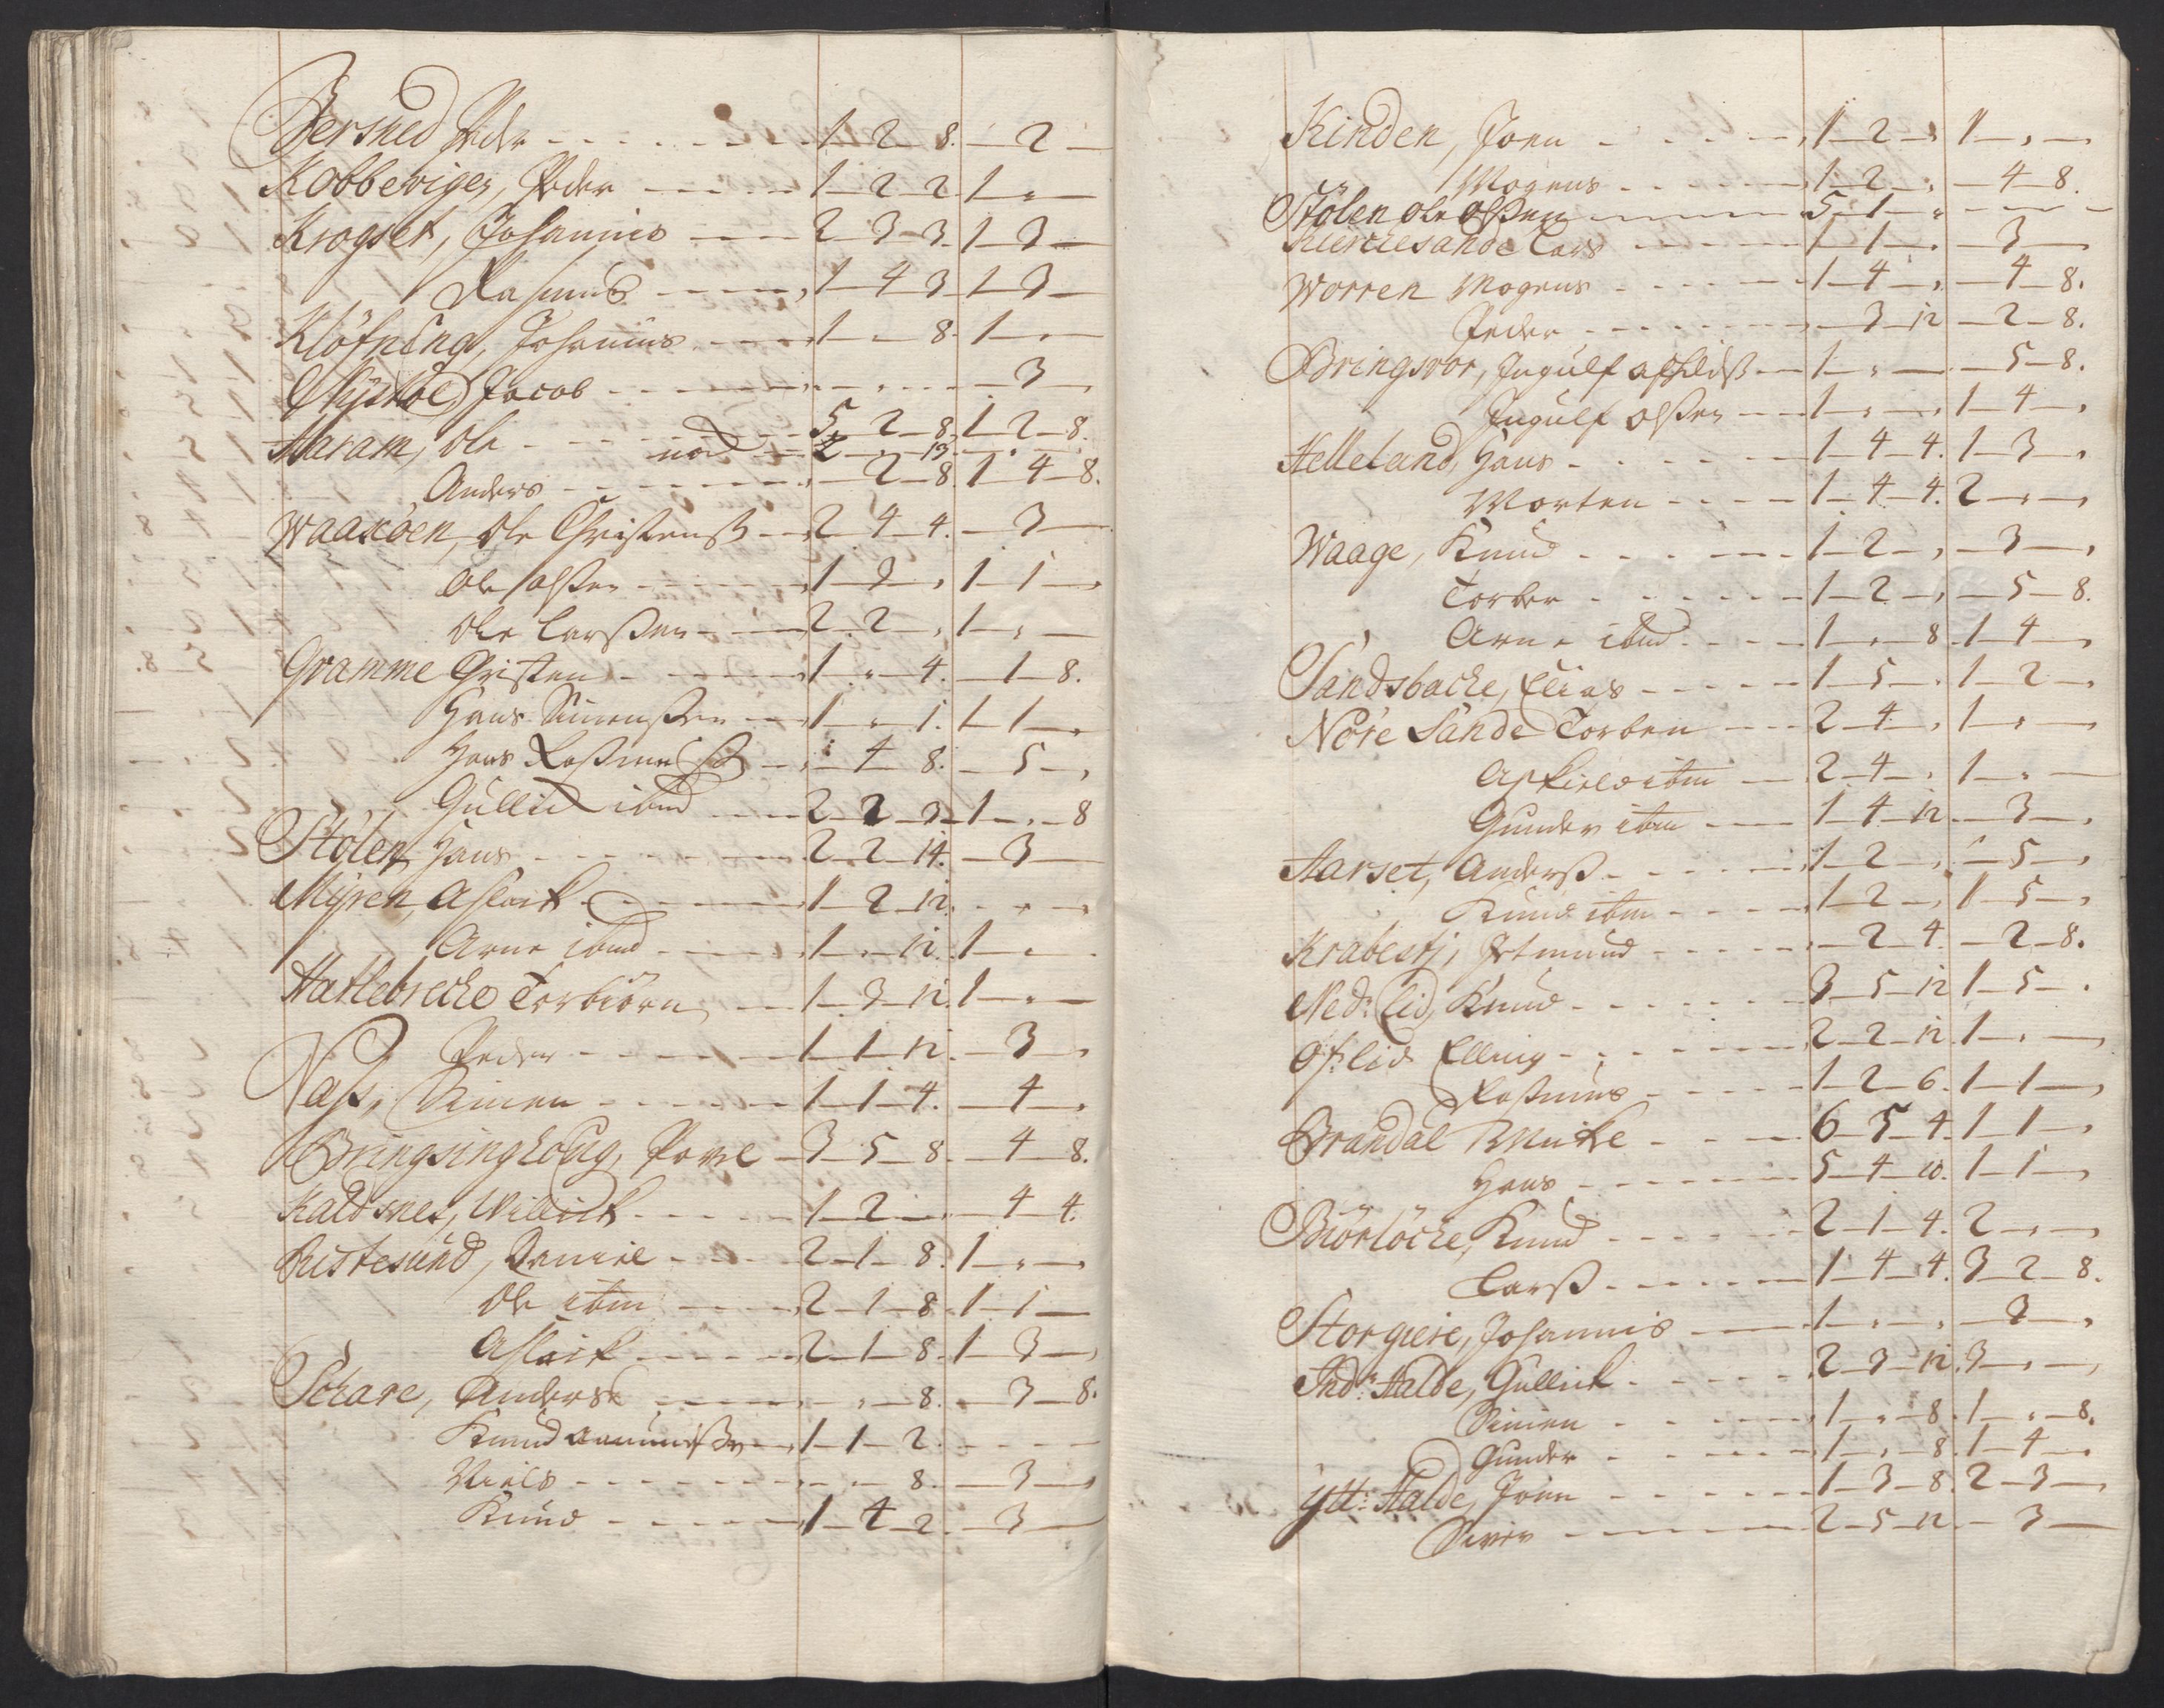 Jersned Peder - - - - - - 1 - 2 - 8. - 2 -
Kobbeviger, Peder - - - - 1 - 2 - 2. 1 - " -
Krogset, Johannis - - - 2 - 3 - 3. 1 - 3 -
Rasmus - - - - 1 - 4 - 3. 1 - 3 -
Klöfning, Johannis - - - 1 - " - 8. 1 - " -
Myskoe Jacob - - - - - " - " - - 3 -
Haram, Ole - - - - - 5 - 2 - 8. 1 - 2 - 8.
nod - 2 - " - 13.
Anders - - - - - " - 2 - 8. 1 - 4 - 8.
Waaxöen, Ole Christenß - 2 - 4 - 4. - 3 -
Ole olßen - - - - 1 - 3 - , 1 - 1 - ,
Ole Larßen - - - 2 - 2 - , 1 - " -
Gramme Christen - - - 1 - " - 4. - 1 - 8.
Hans Simenßen - - 1 - " - 1. 1 - 1 - ,
Hans Raßmusß - - " - 4 - 8. - 5 - ,
Gullic ibmd - - 2 - 2 - 3. 1 - " - 8
Stölen, Hans - - - - 2 - 2 - 14. - 3 -
Myren, Aslack - - - - 1 - 2 - 12. - " - ,
Arne ibmd - - - 1 - " - 12. 1 - " -
Hatlebrecke Torbiörn - - 1 - 3 - 12. 1 - " -
Peder - - - - 1 - 1 - 12. - 3 - ,
Naß, Simen - - - - 1 - 1 - 4. - 4 - ,
Bringsinghoug, Povel - 3 - 5 - 8. - 4 - 8.
Kaldsnes, Willick - - - 1 - 2 - " - 4 - 4.
Ristesund, Daniel - - 2 - 1 - 8. 1 - " - ,
Ole ibm - - - 2 - 1 - 8. 1 - 1 -
Aslack - - - 2 - 1 - 8. 1 - 3 - ,
Schare, Anders - - - - " - 8. - 3 - 8.
Knud - - 1 - 1 - 2. - - -
Niels - - - - - " - 8. - 3 - ,
Knud - - - - 1 - 4 - 2. - 3 -
Kinden, Joen - - - - 1 - 2 - , 1 - " -
Mogens - - - - 1 - 2 - , - 4 - 8.
Stölen ole olßen - - - 5 - 1 - " - - -
Kierchesande Lars - - - 1 - 1 - " - 3 -
Worren Mogens - - - 1 - 4 - , - 4 - 8.
Peder - - - - " - 3 - 12 - 2 - 8.
Bringsvor, Ingulf - 1 - " - - 5 - 8.
Ingulf olßen - - 1 - " - , 1 - 4 - ,
Helleland, Hans - - - - 1 - 4 - 4. 1 - 3 - ,
Morten - - - 1 - 4 - 4. 2 - " - ,
Waage, Knud - - - - 1 - 2 - , - 3 - ,
Torber - - - - 1 - 2 - , - 5 - 8.
Arne ibmd - - - 1 - " - 8. 1 - 4 - ,
Sandsbache, Elias - - - 1 - 5 - " 1 - 2 - ,
Nöre Sande Torben - - 2 - 4 - , 1 - " - ,
Aschield ibm - 2 - 4 - , 1 - " -
Gunder ibm - - 1 - 4 - 12. - 3 - ,
Harset, Anderß - - - - 1 - 2 - , - 5 - ,
Knud ibm - - - 1 - 2 - , 1 - 5 - ,
Krabestj, Jetmund - - - " - 2 - 4. - 2 - 8.
Ned: Lid, Knud - - - - 3 - 5 - 12. 1 - 5 - ,
Öf: Lid Elling - - - - 2 - 2 - 12. 1 - " - ,
Raßmus - - - 1 - 2 - 6. 1 - 1 - ,
Brandal - - - 6 - 5 - 4. 1 - 1 - ,
Hans - - - - 5 - 4 - 10. 1 - 1 - ,
Biörlöche, Knud - - - 2 - 1 - 4. 2 - " - ,
Larß - - - - 1 - 4 - 4. 3 - 2 - 8.
Storgiere, Johannis - - 1 - " - , - 3 - ,
Ind: Halde, Gullick - - - 2 - 3 - 12. 3 - " - ,
Simen - - - - 1 - " - 8. 1 - " - 8.
Gunder - - - - 1 - " - 8. 1 - 4 - ,
ytt: Halde, Joen - - - 1 - 3 - 8. 2 - 3 - ,
Siver - - - - 2 - 5 - 12. - 3 -